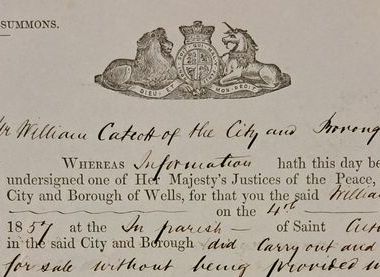 SUMMONS.
DIEU ET MON DROIT
William Catcott of the City and Borough
WHEREAS Information hath this day be
undersigned one of Her Majesty's Justices of the Peace,
City and Borough of Wells, for that you the said William
on the 4th
1857 at the In parish of Saint Cut
in the said City and Borough did Carry out and
for sale without being provided